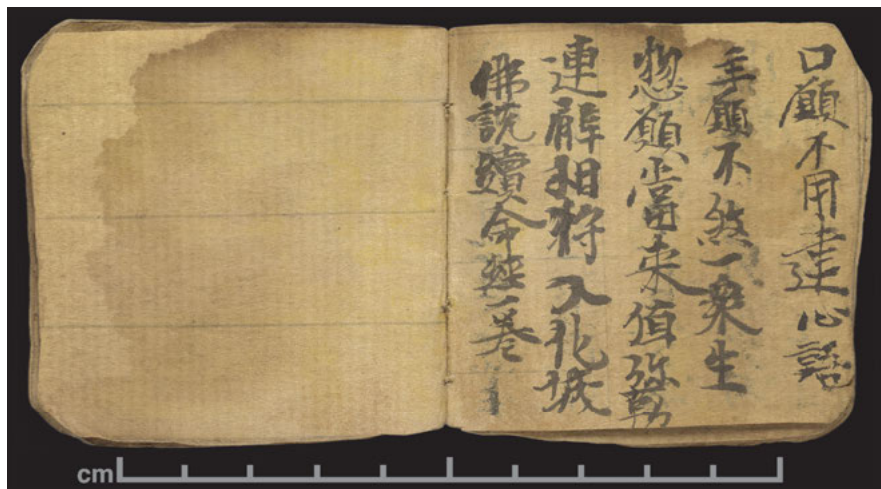 口願不用違心語
手願不煞一衆生
惣願當来值弥勒
連臂相將入化城
佛説贖命經一卷
cm